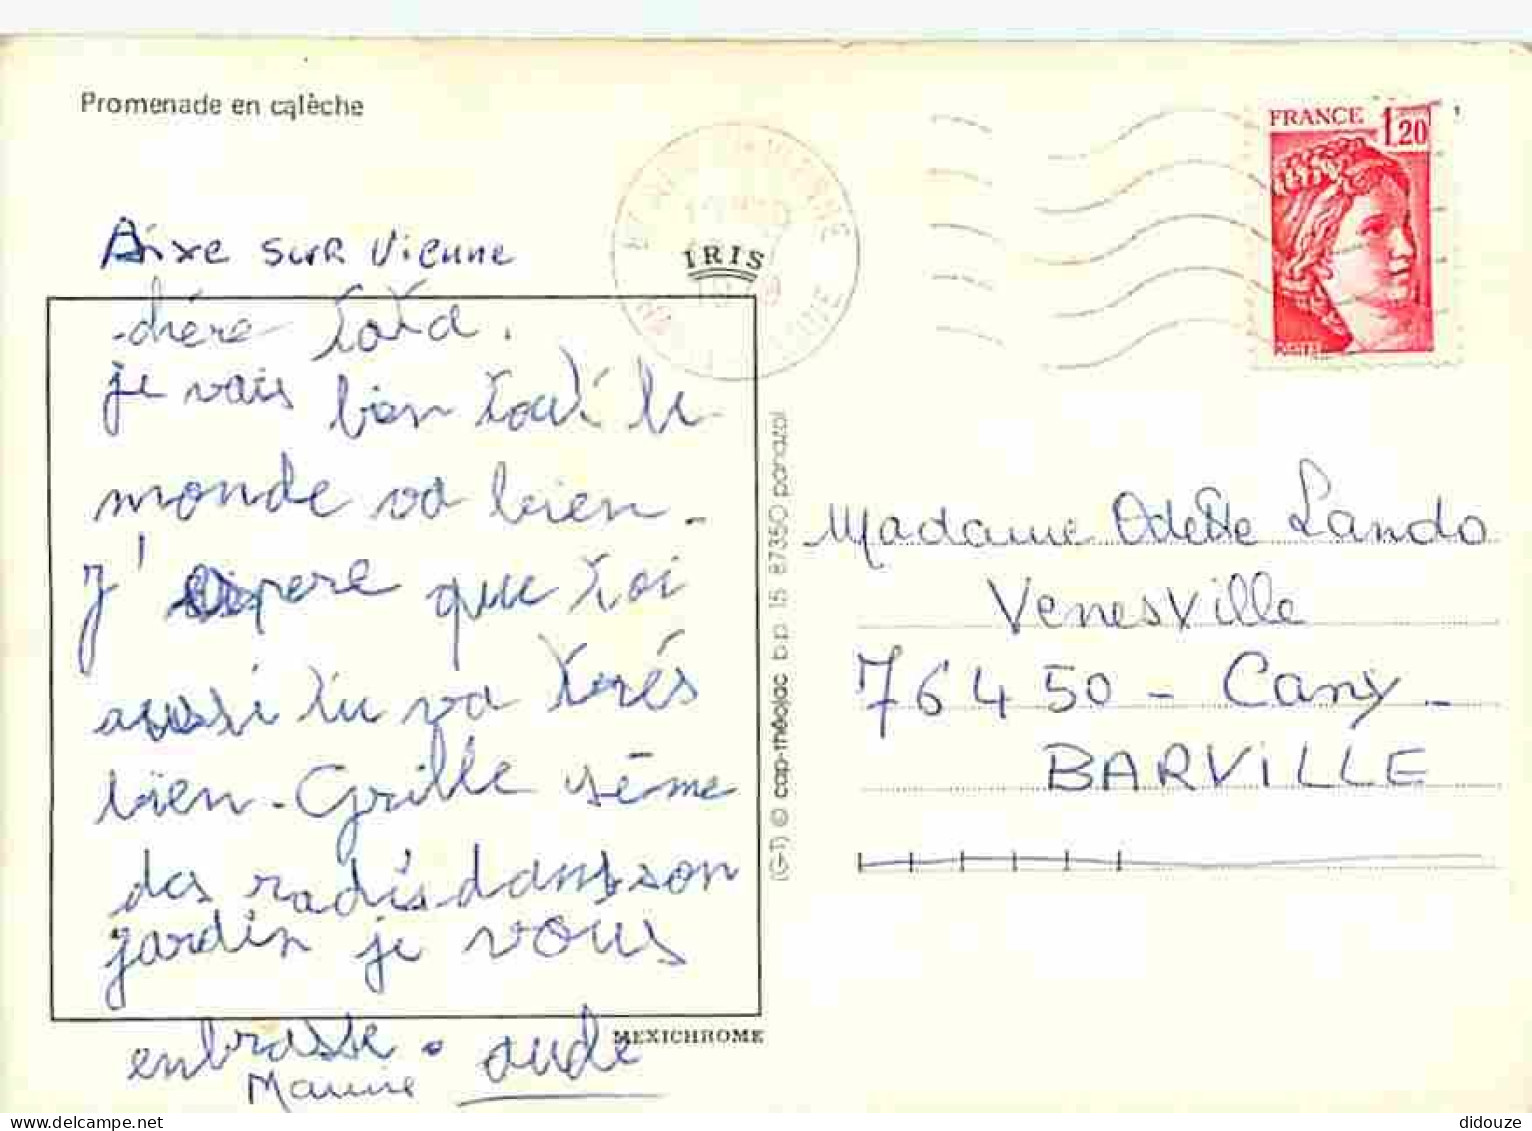 Promenade en calèche
FRANCE 1,20
POSTES
IRIS
Aixe sur Vienne
chère tata.
je vais bien tout le
monde va bien.
J'espere que toi
aussi tu va trés
bien. Grille sème
des radis dans son
jardin je vous
enbrasse. aude
MEXICHROME
(G-T) © cap-théojac b.p. 15 87350 panazol
Madame Odette Lando
Venesville
76450 - Cany -
BARVILLE
delcampe.net
didouze